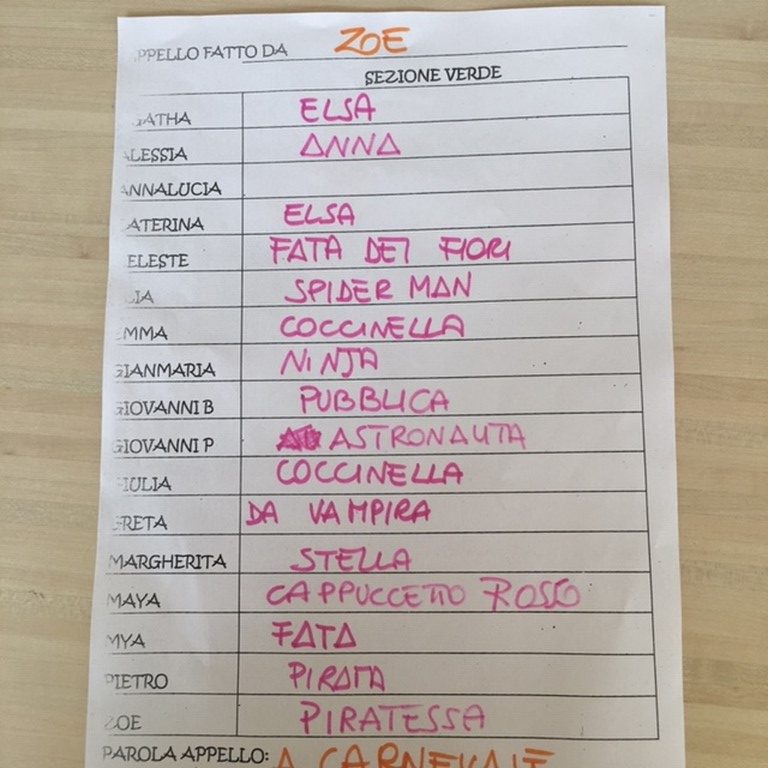 PPELLO FATTO DA ZOE
SEZIONE VERDE
GATHA ELSA
ALESSIA ANNA
ANNALUCIA
ATERINA ELSA
ELESTE FATA DEI FIORI
LIA SPIDER MAN
EMMA COCCINELLA
GIANMARIA NINJA
GIOVANNI B PUBBLICA
GIOVANNI P ASTRONAUTA
GIULIA COCCINELLA
GRETA DA VAMPIRA
MARGHERITA STELLA
MAYA CAPPUCCETTO ROSSO
MYA FATA
PIETRO PIRATA
ZOE PIRATESSA
PAROLA APPELLO: A CARNEVALE